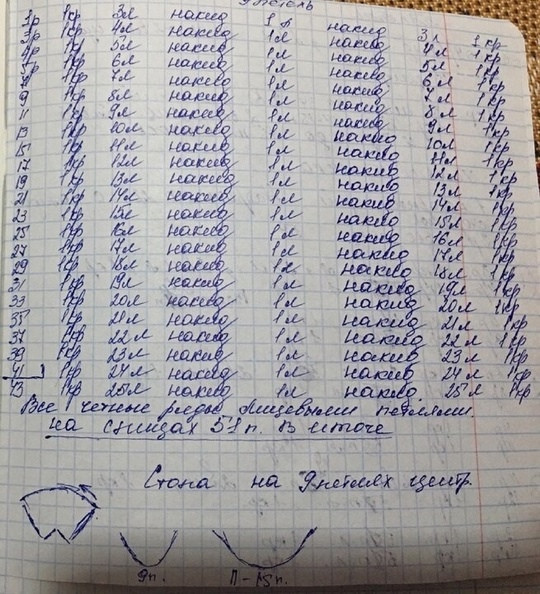 петель
1р 1кр 3л накид 1л накид 3л 1кр
3р 1кр 4л накид 1л накид 4л 1кр
4р 1кр 5л накид 1л накид 5л 1кр
5р 1кр 6л накид 1л накид 6л 1кр
7 1кр 7л накид 1л накид 7л 1кр
9 1кр 8л накид 1л накид 8л 1кр
11 1кр 9л накид 1л накид 9л 1кр
13 1кр 10л накид 1л накид 10л 1кр
15 1кр 11л накид 1л накид 11л 1кр
17 1кр 12л накид 1л накид 12л 1кр
19 1кр 13л накид 1л накид 13л 1кр
21 1кр 14л накид 1л накид 14л 1кр
23 1кр 15л накид 1л накид 15л 1кр
25 1кр 16л накид 1л накид 16л 1кр
27 1кр 17л накид 1л накид 17л 1кр
29 1кр 18л накид 1л накид 18л 1кр
31 1кр 19л накид 1л накид 19л 1кр
33 1кр 20л накид 1л накид 20л 1кр
35 1кр 21л накид 1л накид 21л 1кр
37 1кр 22л накид 1л накид 22л 1кр
39 1кр 23л накид 1л накид 23л 1кр
41 1кр 24л накид 1л накид 24л 1кр
43 1кр 25л накид 1л накид 25л 1кр
Все четные ряды лицевыми петлями
на спицах 51п. В итоге
Стопа на 9 петлях центр.
9п. 11-15п.